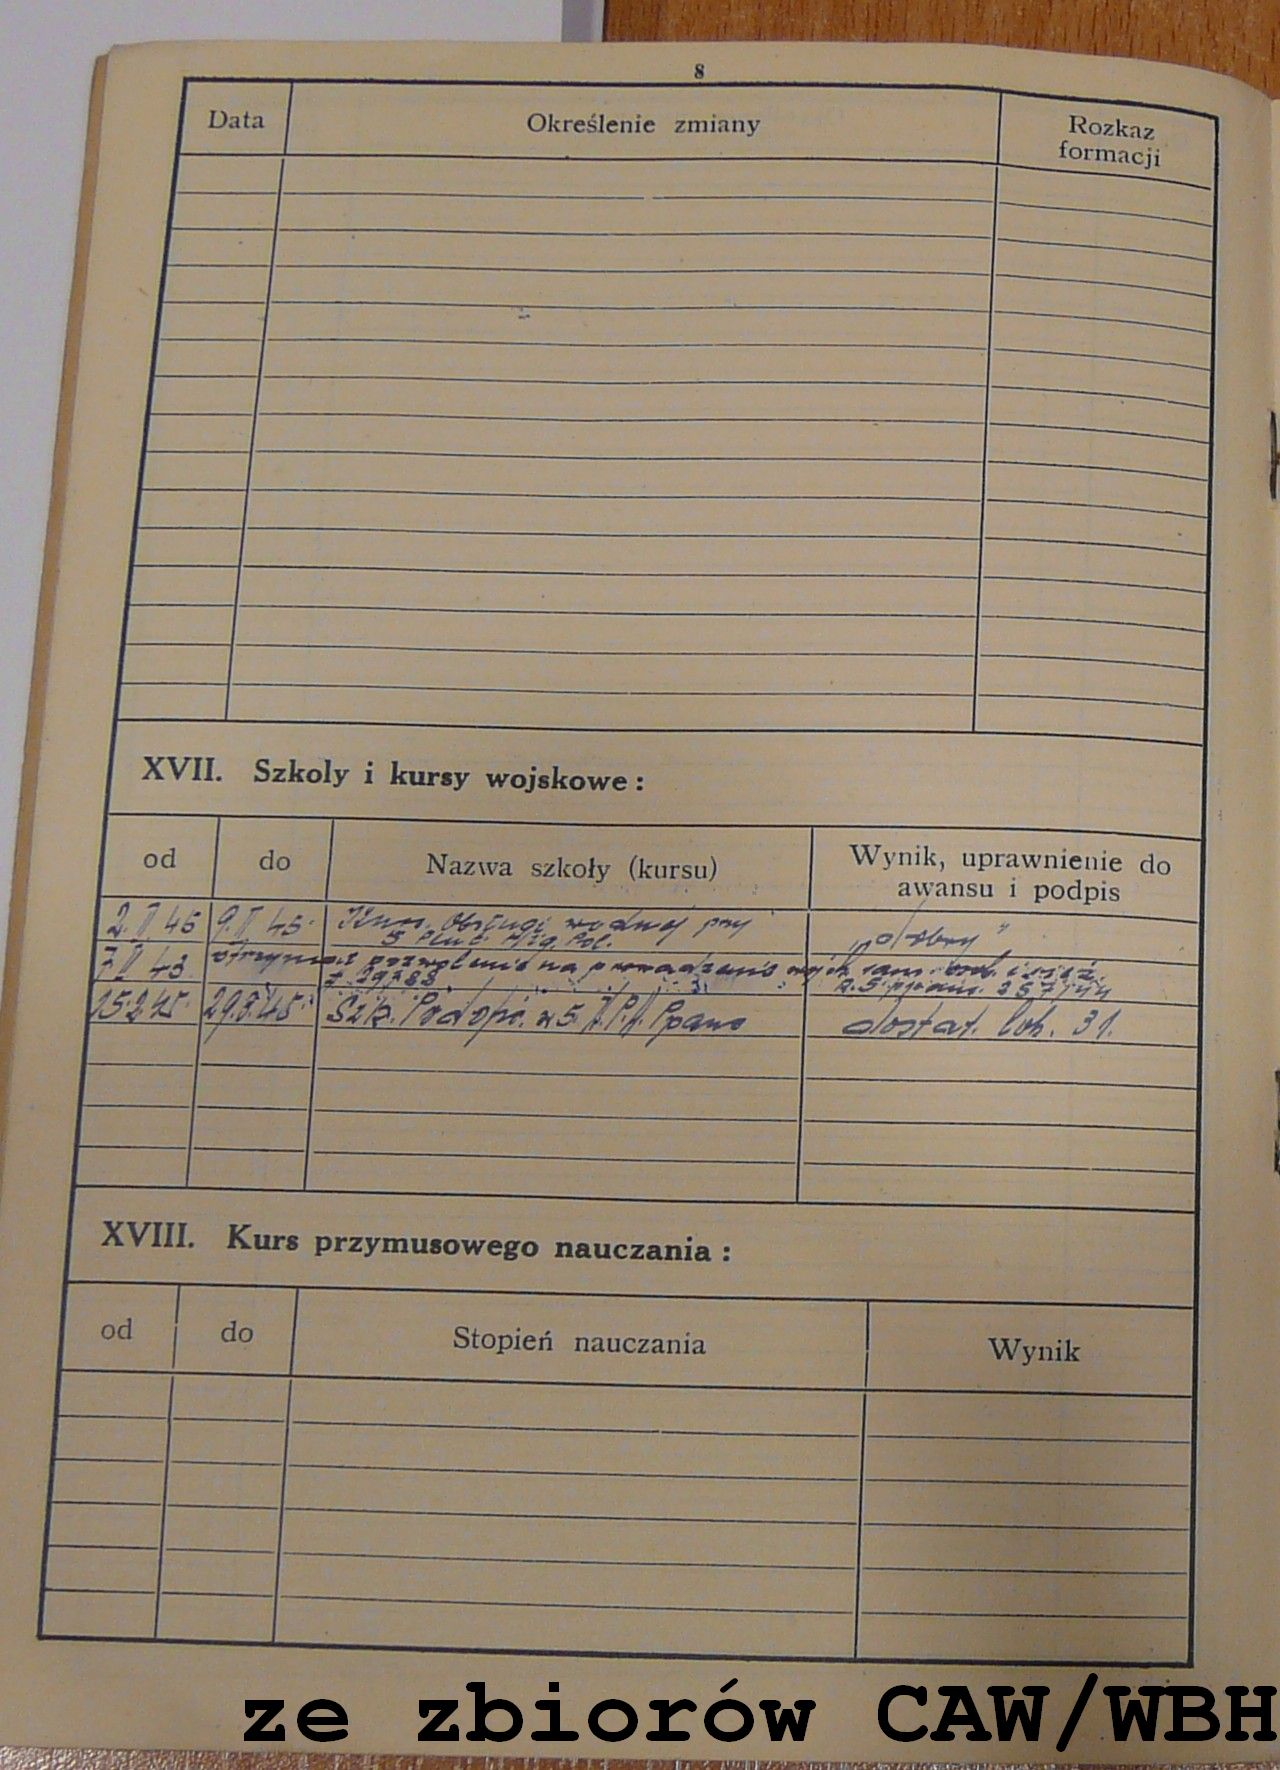 8
Data Określenie zmiany Rozkaz formacji
XVII. Szkoly i kursy wojskowe:
od do Nazwa szkoły (kursu) Wynik, uprawnienie do awansu i podpis
2.II 45 9.II 45. Kurs. Obsługi wodnej przy
5 Hig. Pol. „dobry"
7 II 43 otrzymał pozwolenie na prowadzenie wojsk. sam. i
29783
15.2.45. 29.8.45. Szk. Podofic. w 5. Ppanc dostat. lok. 31.
XVIII. Kurs przymusowego nauczania:
od do Stopień nauczania Wynik
ze zbiorów CAW/WBH